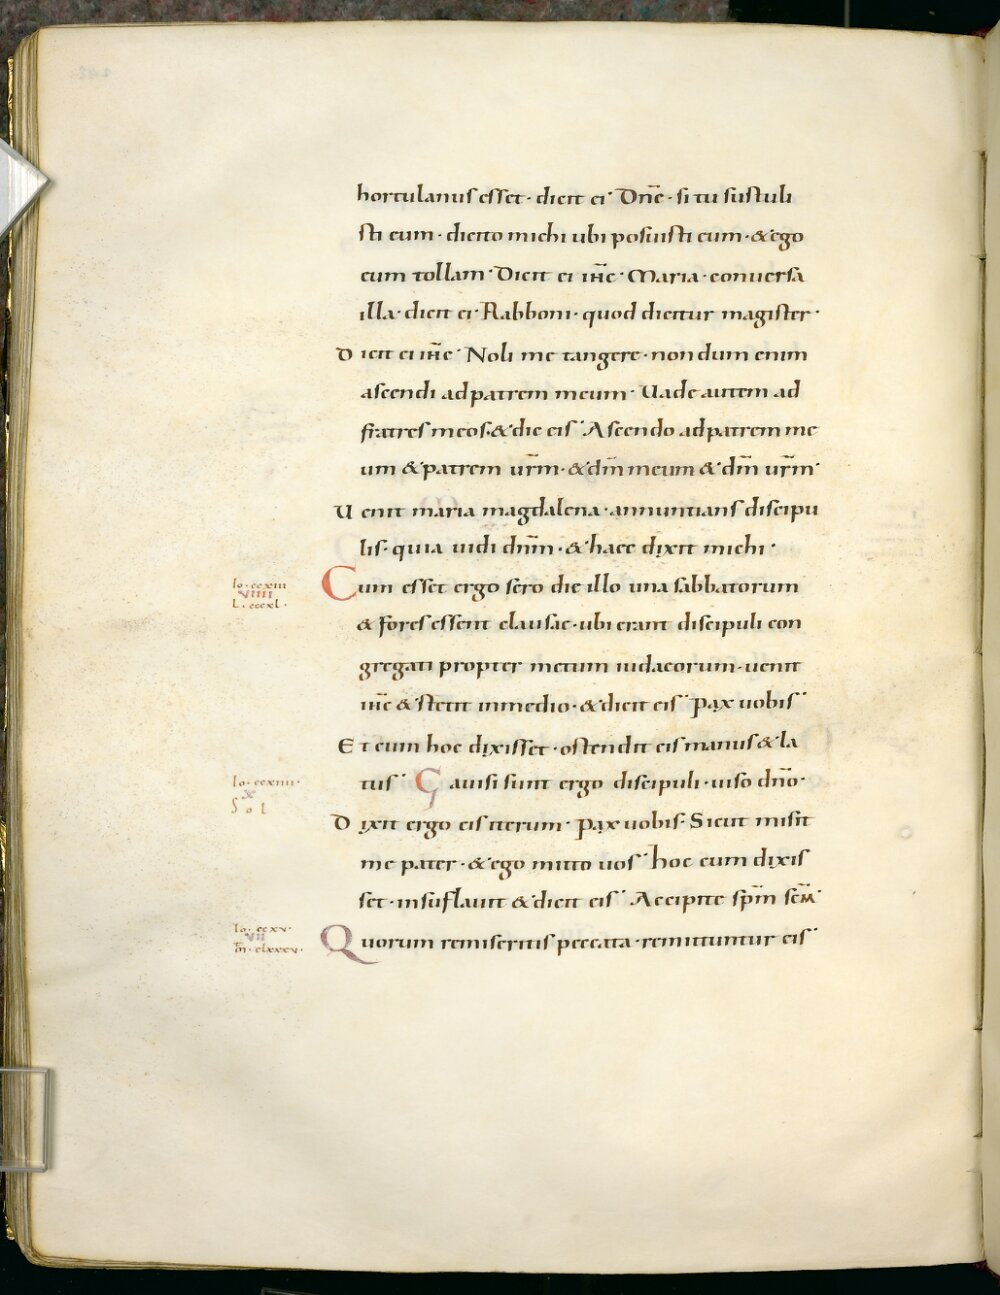 hortulanus esset · dicit ei · Dn̄e · si tu sustuli
sti eum · dicito michi ubi posuisti eum · & ego
eum tollam · Dicit ei ihc̄ · Maria · conuersa
illa · dicit ei · Rabboni · quod dicitur magister ·
Dicit ei ihc̄ · Noli me tangere · nondum enim
ascendi ad patrem meum · Uade autem ad
fratres meos · & dic eis · Ascendo ad patrem me
um & patrem ur̄m · & dm̄ meum & dm̄ ur̄m ·
Uenit maria magdalena · annuntians discipu
lis · quia uidi dnm̄ · & haec dixit michi ·
Io · ccxiii
VIIII
L · cccxl ·
Cum esset ergo sero die illo una sabbatorum
& fores essent clausae · ubi erant discipuli con
gregati propter metum iudaeorum · uenit
ihc̄ & stetit in medio · & dicit eis · Pax uobis ·
Et cum hoc dixisset · ostendit eis manus & la
Io · ccxiiii ·
X
Sol
tus · Gauisi sunt ergo discipuli · uiso dn̄o ·
Dixit ergo eis iterum · Pax uobis · Sicut misit
me pater · & ego mitto uos · hoc cum dixis
set · insuflauit & dicit eis · Accipite sp̄m sc̄m ·
Io · ccxv ·
VII
m̄ · clxxxv ·
Quorum remiseritis peccata · remittuntur eis ·